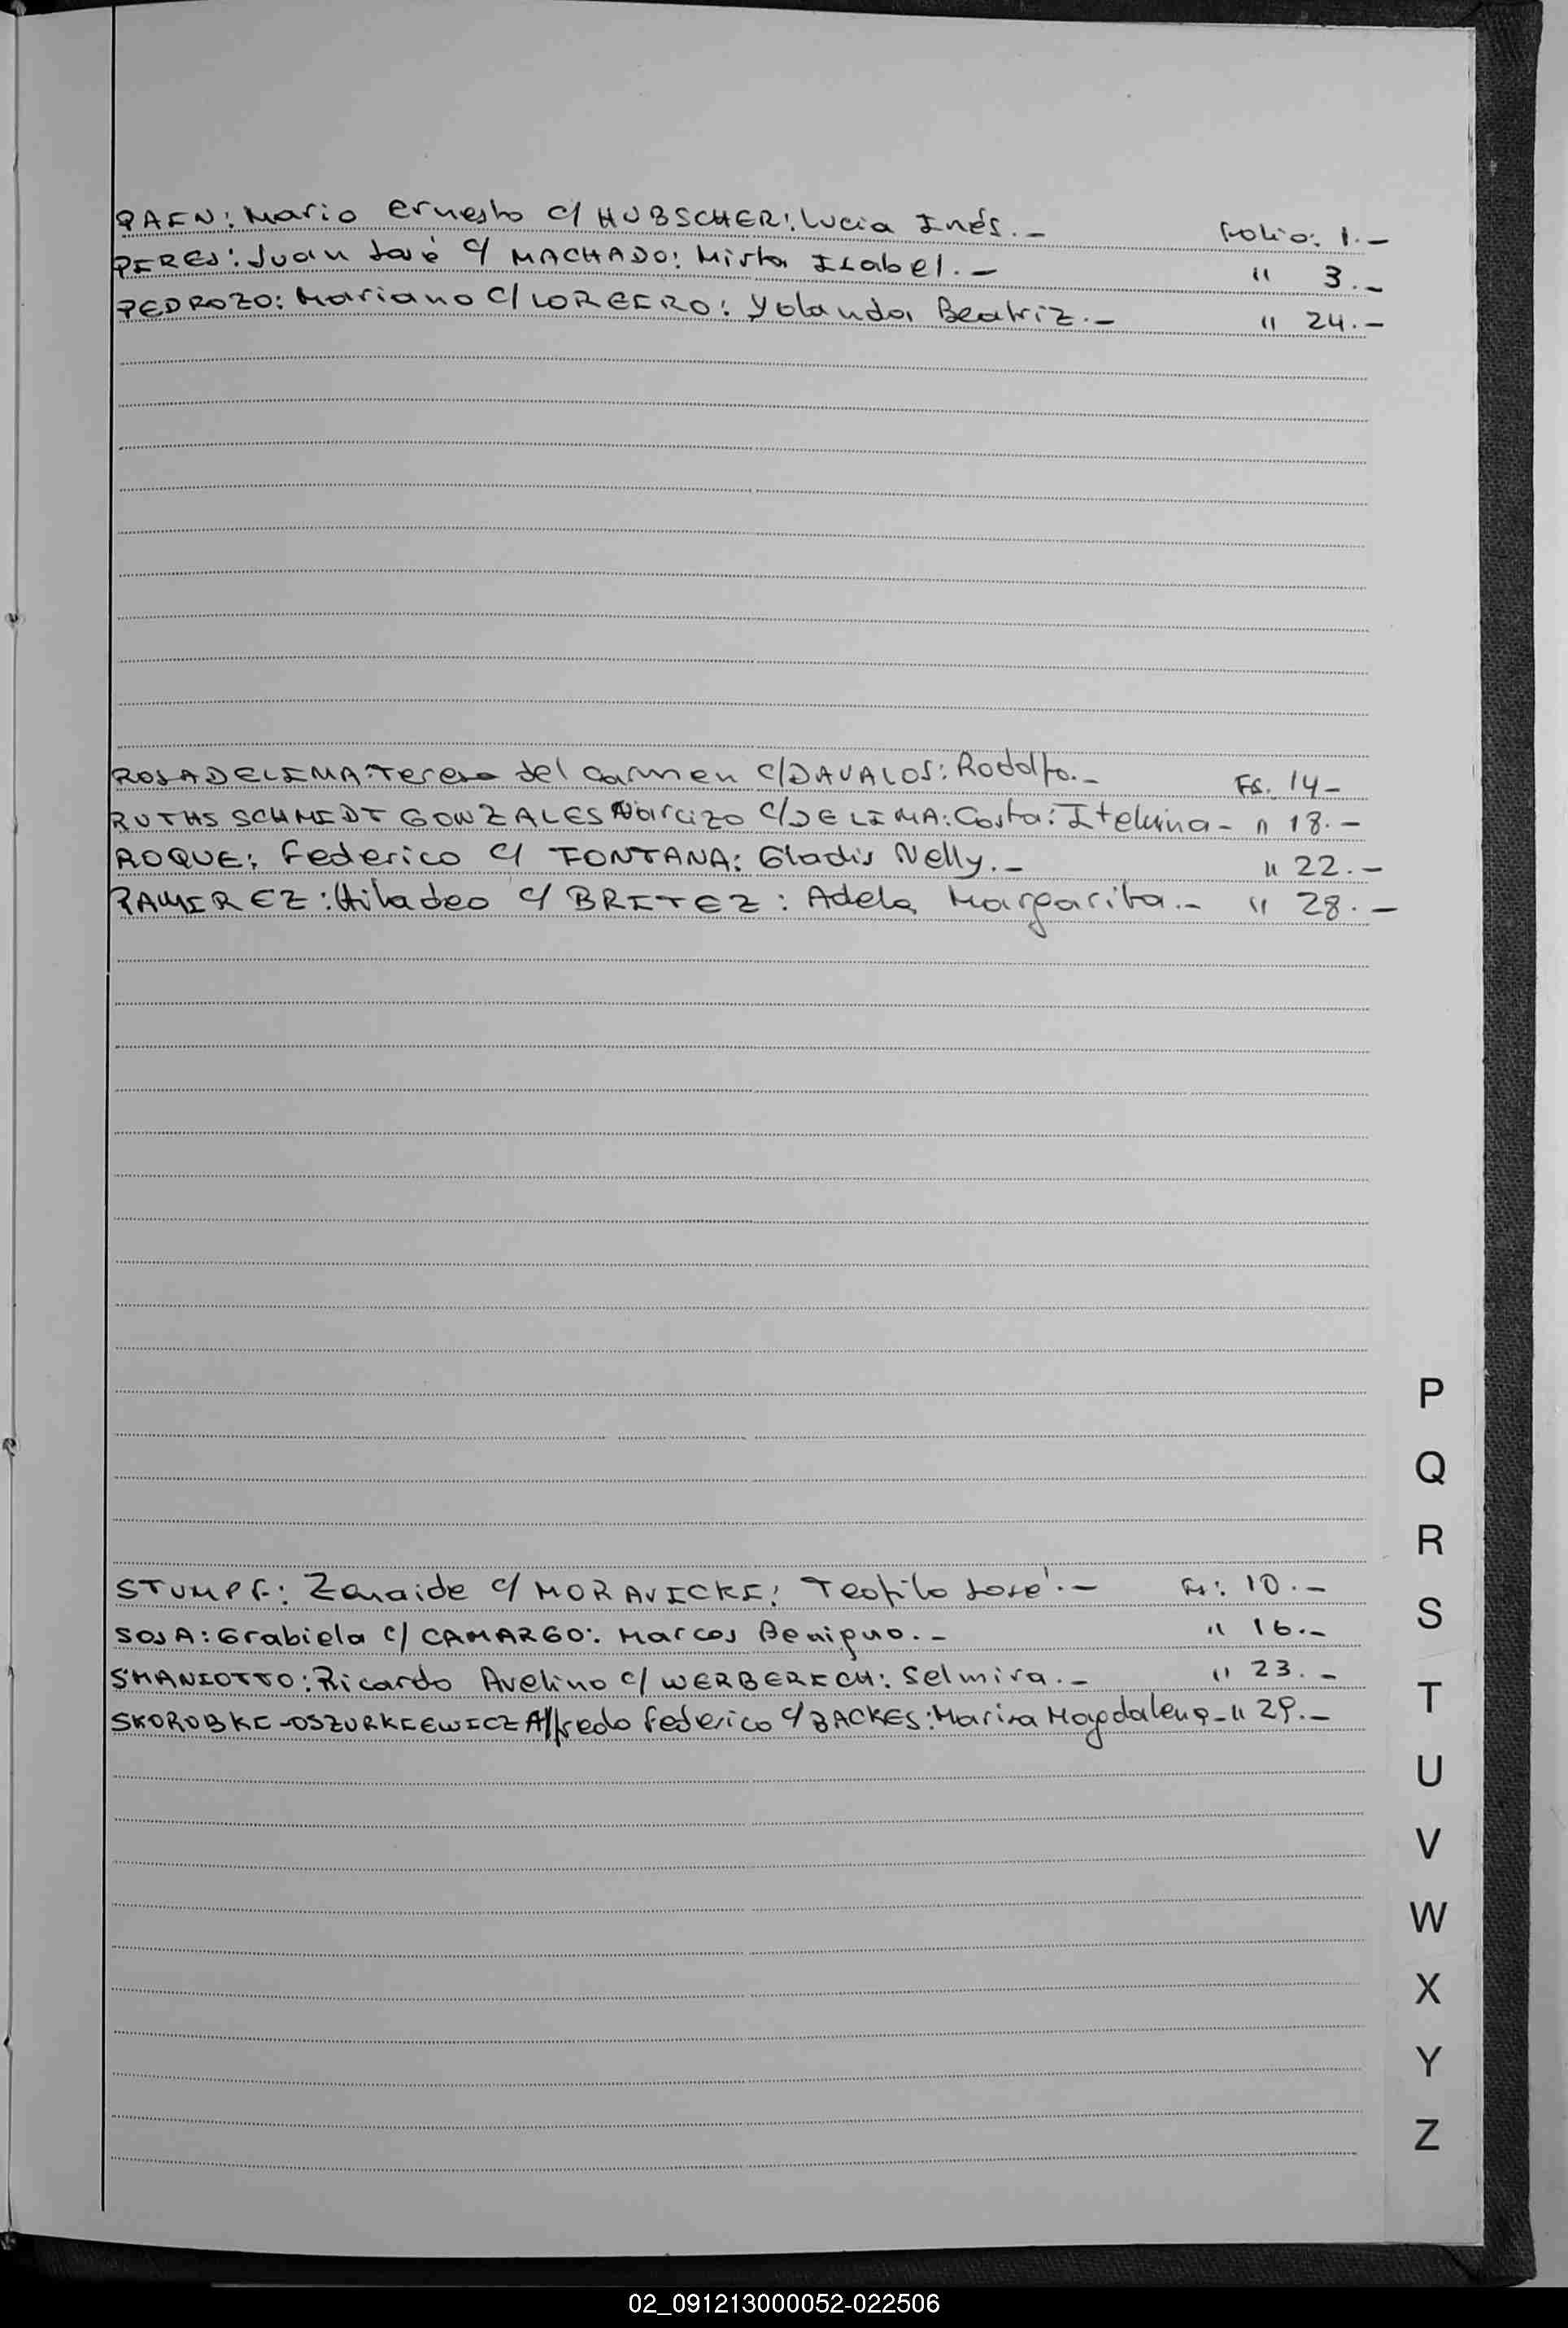 PAEN: Mario Ernesto c/ HUBSCHER: Lucia Inés.- Folio: 1.-
PERES: Juan José c/ MACHADO: Mirta Isabel.- " 3.-
PEDROZO: Mariano c/ LOREERO: Yolanda Beatriz.- " 24.-
ROSADELIMA: Teresa del Carmen c/ DAVALOS: Rodolfo.- Fs. 14-
RUTHS SCHMIDT GONZALES Narcizo c/ DE LIMA: Costa: - " 18.-
ROQUE: Federico c/ FONTANA: Gladis Nelly.- " 22.-
RAMIREZ: c/ BRITEZ: Adela Margarita.- " 28.-
STUMPF: Zenaide c/ MORAVICKI: Teofilo José.- Fs: 10.-
SOSA: Grabiela c/ CAMARGO: Marcos Benigno.- " 16.-
SMANIOTTO: Ricardo Avelino c/ WERBERICH: Selmira.- " 23.-
SKOROBKI-OSZURKIEWICZ Alfredo Federico c/ BACKES: Marisa Magdalena- " 29.-
P
Q
R
S
T
U
V
W
X
Y
Z
02_091213000052-022506